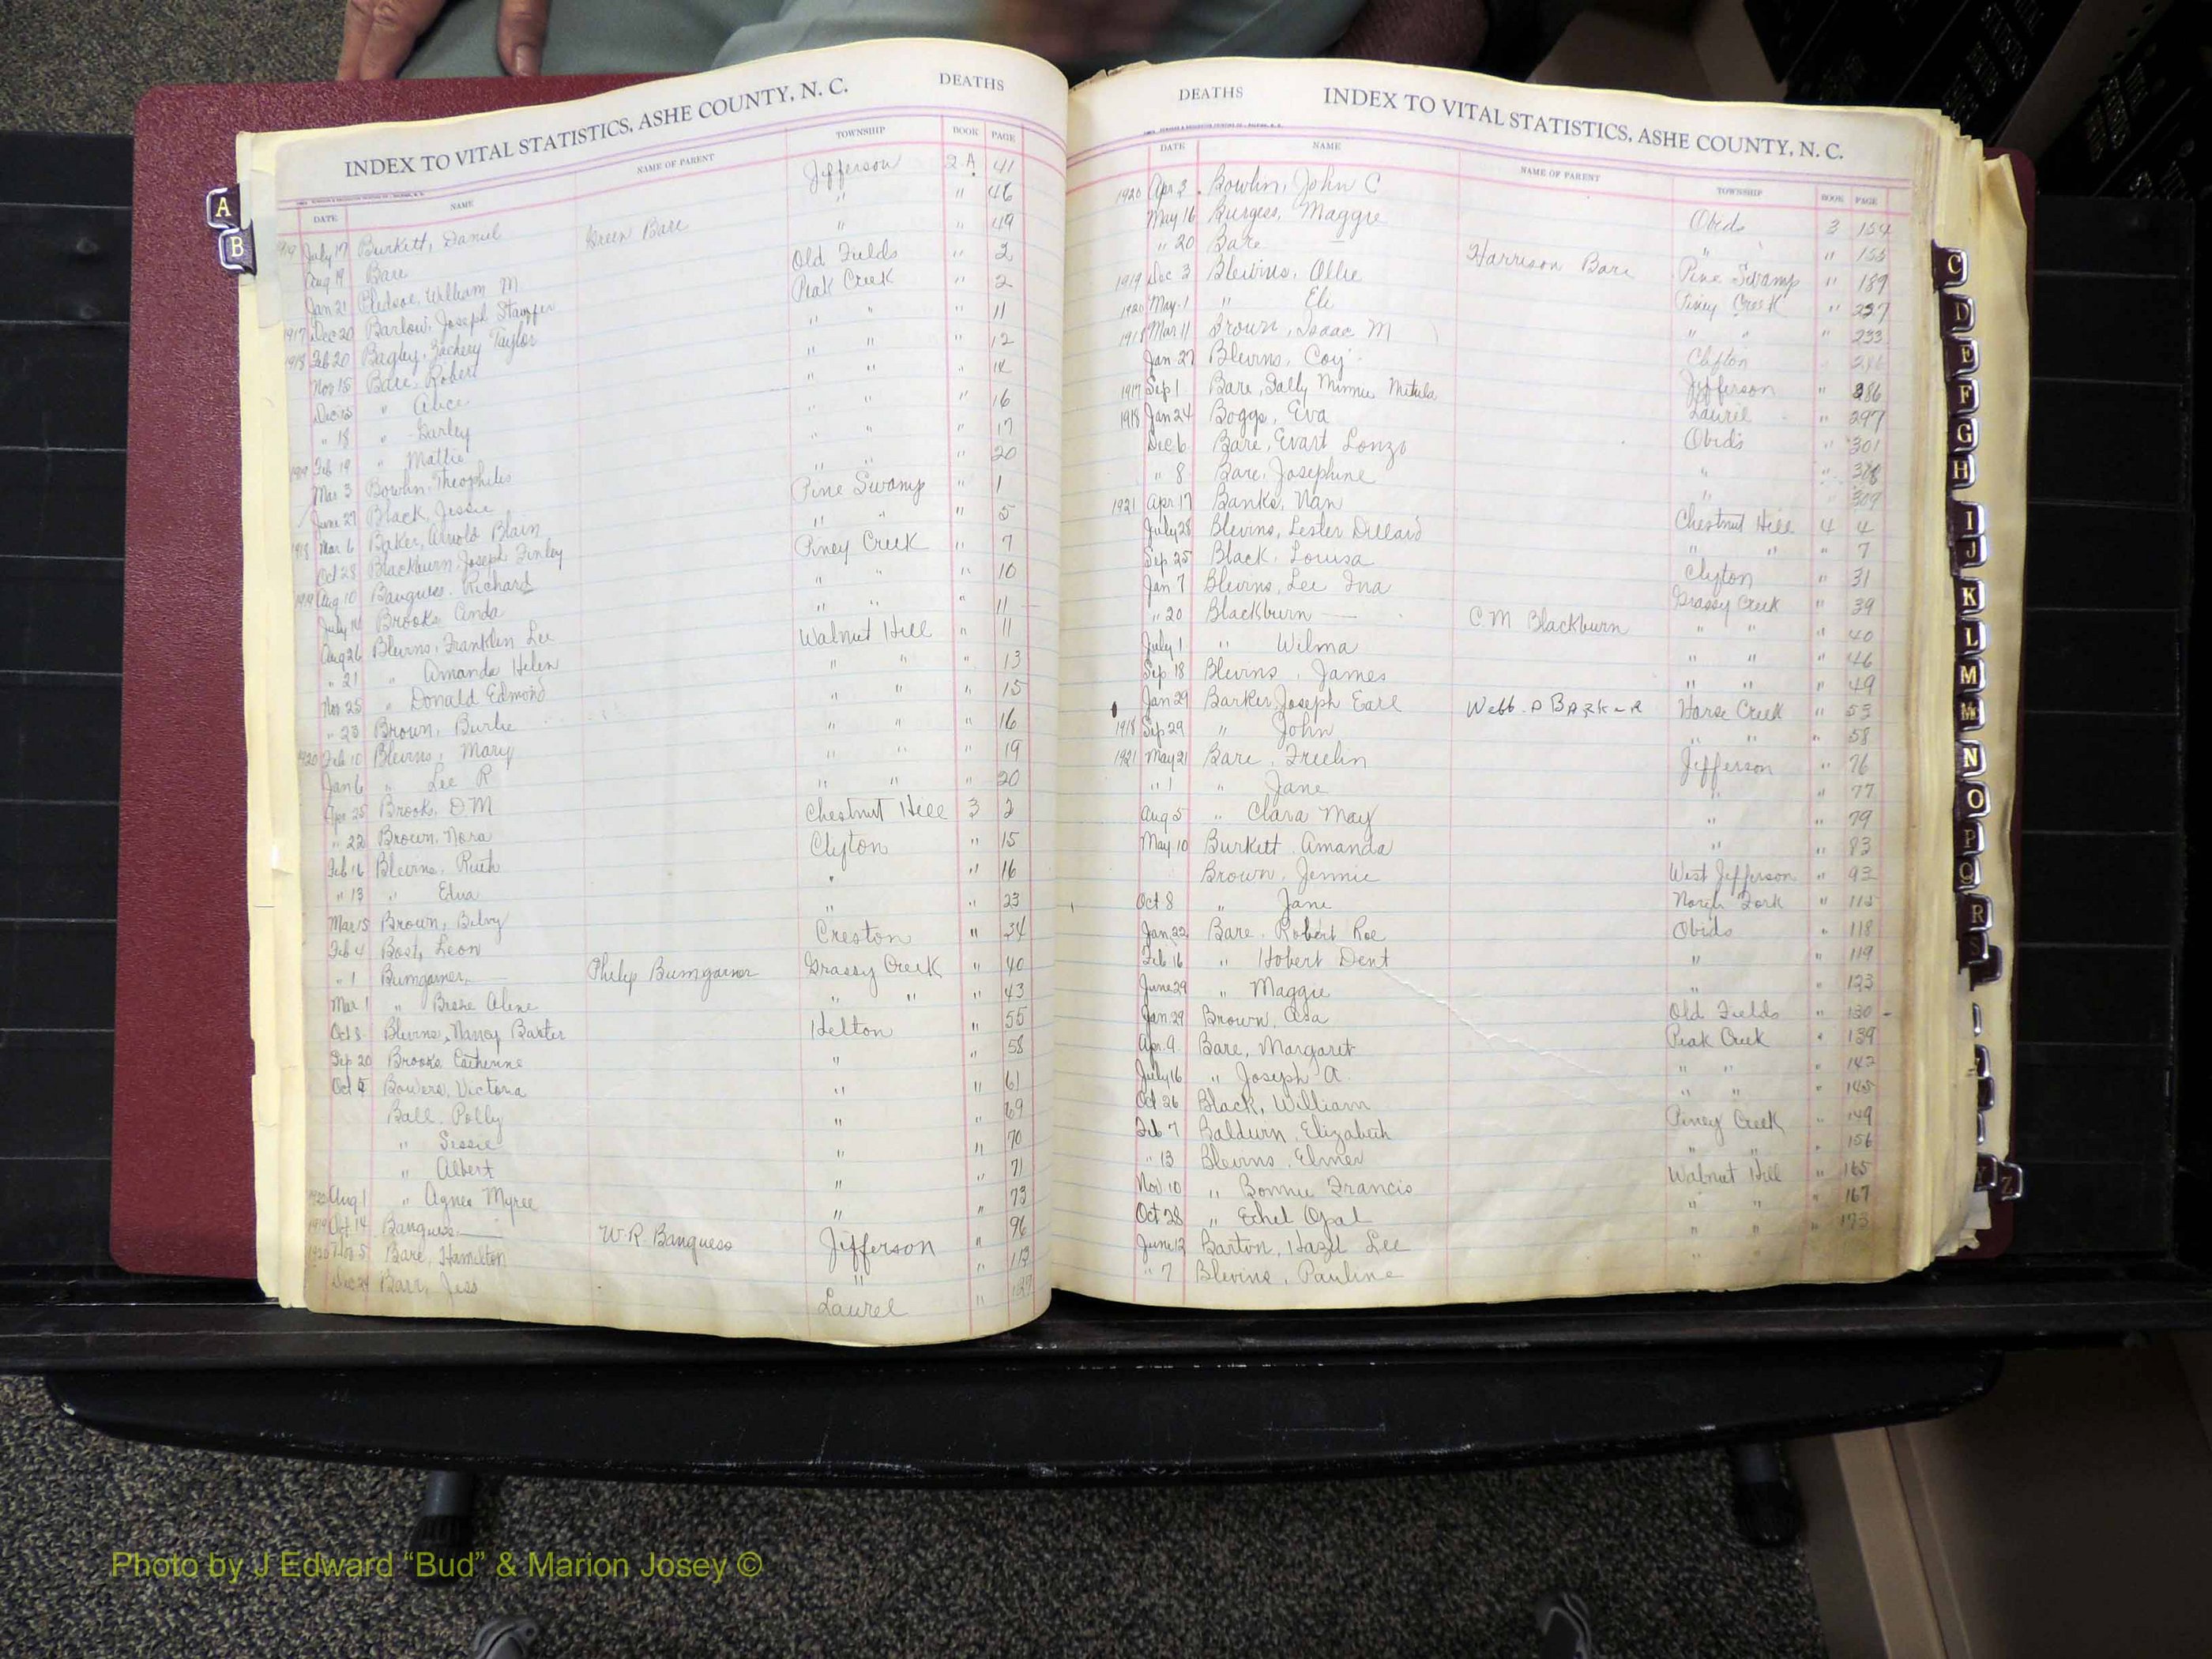 INDEX TO VITAL STATISTICS, ASHE COUNTY, N. C. DEATHS
DATE NAME NAME OF PARENT TOWNSHIP BOOK PAGE
July 17 Burkett, Daniel Jefferson 2 A 41
Aug 19 Bare Green Bare " " 46
Jan 21 Bledsoe, William M " " 49
1917 Dec 20 Barlow, Joseph Stamper Old Fields " 2
1918 Feb 20 Bagley, Zachery Taylor Peak Creek " 2
Nov 15 Bare, Robert " " " 11
Dec 13 " Alice " " " 12
" 18 " Garley " " " 14
1919 Feb 19 " Mattie " " " 16
Mar 3 Bowlin, Theophilis " " " 17
June 27 Black, Jessie " " " 20
1918 Mar 6 Baker, Arnold Blain Pine Swamp " 1
Oct 28 Blackburn, Joseph Finley " " " 5
1919 Aug 10 Bauguess, Richard Piney Creek " 7
July 14 Brooks, Anda " " " 10
Aug 26 Blevins, Franklin Lee " " " 11
" 21 " Amanda Helen Walnut Hill " 11
Nov 25 " Donald Edmond " " " 13
" 23 Brown, Burlie " " " 15
1920 Feb 10 Blevins, Mary " " " 16
Jan 6 " Lee R " " " 19
Apr 25 Brook, D M " " " 20
" 22 Brown, Nora Chestnut Hill 3 2
Feb 16 Blevins, Ruth Clifton " 15
" 13 " Edna " " 16
Mar 15 Brown, Bilvy " " 23
Feb 4 Bost, Leon Creston " 34
" 1 Bumgarner, — Philip Bumgarner Grassy Creek " 40
Mar 1 " Alene " " " 43
Oct 8 Blevins, Nancy Baxter Helton " 55
Sep 20 Brooks, Catherine " " 58
Oct 5 Bowers, Victoria " " 61
Ball, Polly " " 69
" Sissie " " 70
" Albert " " 71
1920 Aug 1 " Agnes Myree " " 73
1919 Oct 14 Bauguess — W. R. Bauguess Jefferson " 96
1920 Nov 5 Bare, Hamilton " " 113
Dec 24 Barr, Jess Laurel "
DEATHS INDEX TO VITAL STATISTICS, ASHE COUNTY, N. C.
DATE NAME NAME OF PARENT TOWNSHIP BOOK PAGE
1920 Apr 3 Bowlin, John C Obids 3 154
May 16 Burgess, Maggie " " " 155
" 20 Bare — Harrison Bare Pine Swamp " 189
1919 Dec 3 Blevins, Ollie Piney Creek " 227
1920 May 1 " Eli " " " 233
1918 Mar 11 Brown, Isaac M Clifton
Jan 27 Blevins, Coy Jefferson " 286
1917 Sep 1 Bare, Sally Minnie Metula Laurel " 297
1918 Jan 24 Boggs, Eva Obids " 301
Dec 6 Bare, Evart Lonzo " "
" 8 Bare, Josephine " " 309
1921 Apr 17 Banks, Nan Chestnut Hill 4 4
July 28 Blevins, Lester Dillard " " " 7
Sep 25 Black, Lousa Clifton " 31
Jan 7 Blevins, Lee Ina Grassy Creek " 39
" 20 Blackburn — C. M Blackburn " " " 40
July 1 " Wilma " " " 46
Sep 18 Blevins, James " " " 49
Jan 29 Barker, Joseph Earl Webb. D BARKER Horse Creek " 55
1918 Sep 29 " John " " " 58
1921 May 21 Bare, Freelin Jefferson " 76
" 1 " Jane " " 77
Aug 5 " Clara May " " 79
May 10 Burkett, Amanda " " 83
Brown, Jennie West Jefferson " 93
Oct 8 " Jane North Fork " 115
Jan 22 Bare, Robert Roe Obids " 118
Feb 16 " Hobert Dent " " 119
June 29 " Maggie " " 123
Jan 29 Brown, Asa Old Fields " 130
Apr. 9 Bare, Margaret Peak Creek " 139
July 16 " Joseph A. " " " 142
Oct 26 Black, William " " " 145
Feb 7 Baldwin, Elizabeth Piney Creek " 149
" 13 Blevins, Elmer " " " 156
Nov 10 " Bonnie Francis Walnut Hill " 165
Oct 28 " Ethel Opal " " " 167
June 12 Barton, Hazel Lee " " " 173
" 7 Blevins, Pauline
A
B
C
D
E
F
G
H
I
J
K
L
M
Mc
N
O
P
Q
R
S
Y
Z
Photo by J Edward “Bud” & Marion Josey ©